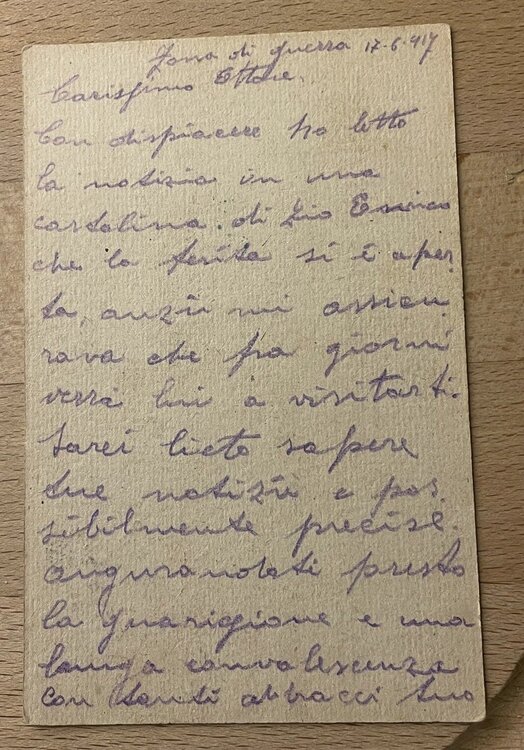 Zona di guerra 17-6-917
Carissimo Ettore.
Con dispiacere ho letto
la notizia in una
cartolina di zio Enrico
che la ferita si è aper
ta, anzii mi assicu
rava che fra giorni
verrà lui a visitarti.
Sarei lieto sapere
tue notizii e pos
sibilmente precise.
augurandoti presto
la guarigione e una
lunga convalescenza
con tanti abbracci tuo